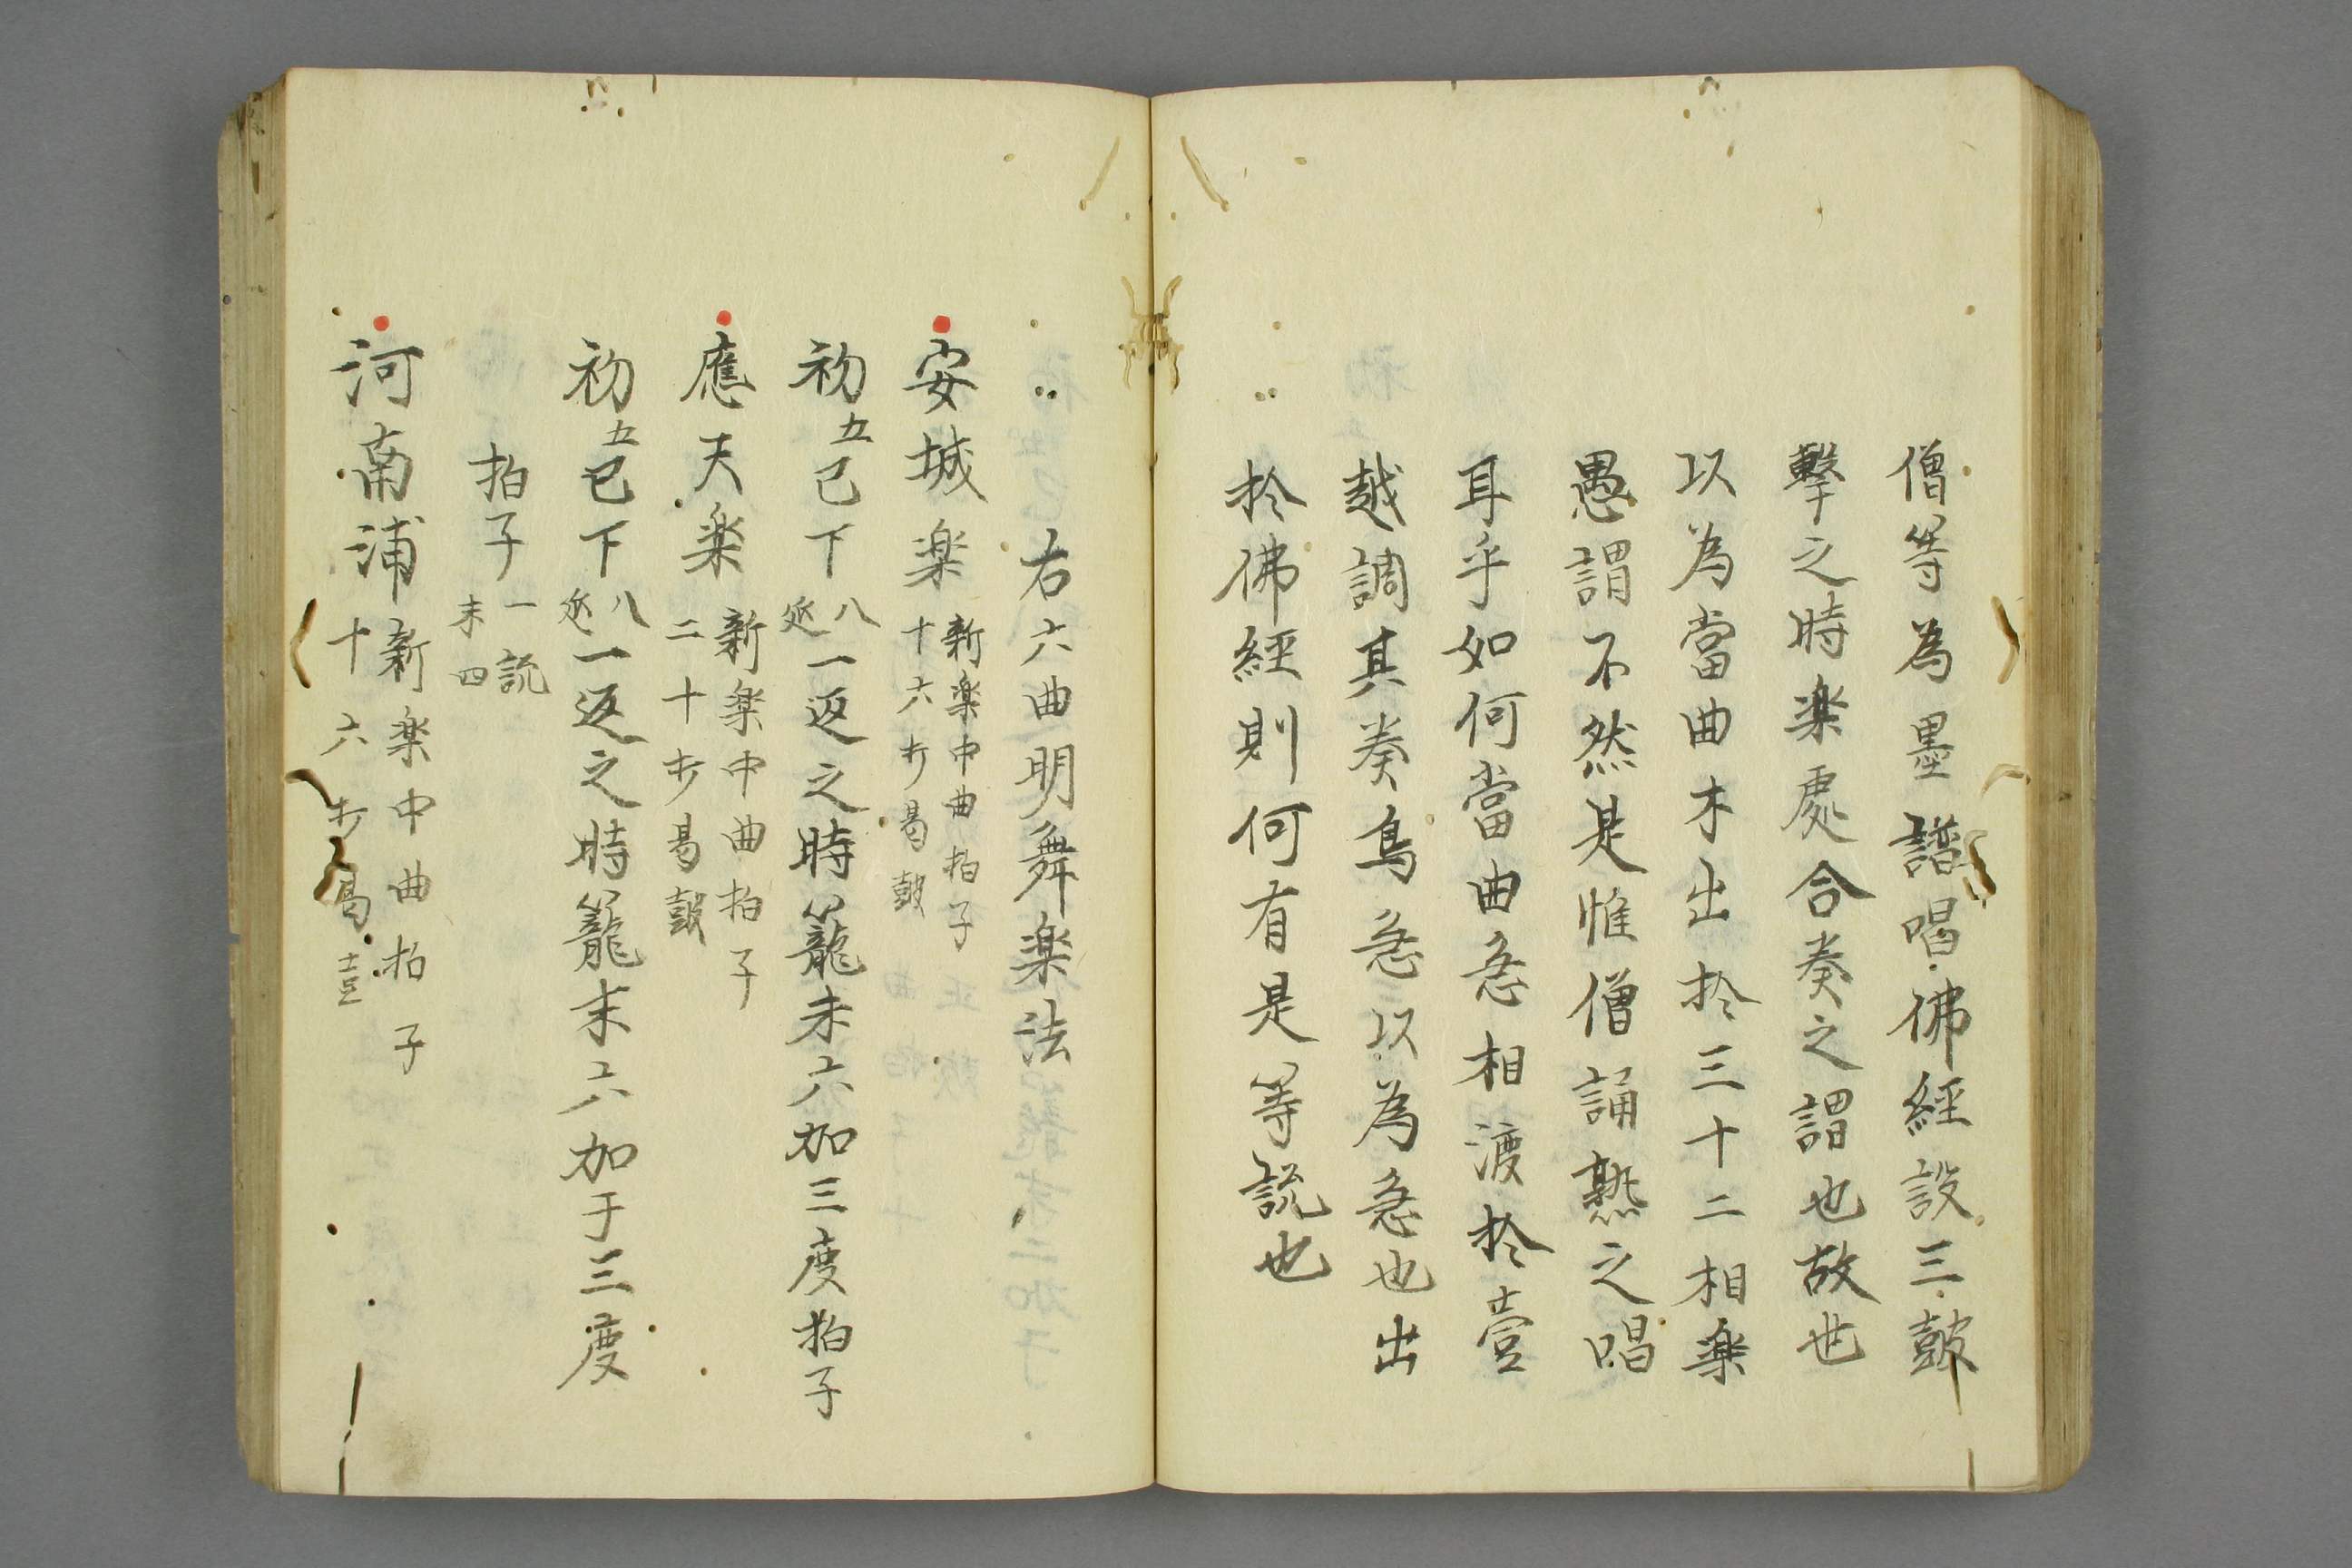 僧等為墨譜唱佛經設三鼓
擊之時楽處合奏之謂也故世
以為當曲木出於三十二相楽
愚謂不然是惟僧誦熟之唱
耳乎如何當曲急相渡於壹
越調其奏鳥急以為急也出
於佛經則何有是等説也
右六曲明舞楽法
安城楽 新楽中曲拍子
十六才曷鼓
初五已下 八
延 一返之時籠末六加三度拍子
應天楽 新楽中曲拍子
二十才曷鼓
初五已下 八
延 一返之時籠末六加于三度
拍子 一説
末四
河南浦 新楽中曲拍子
十六才曷壹